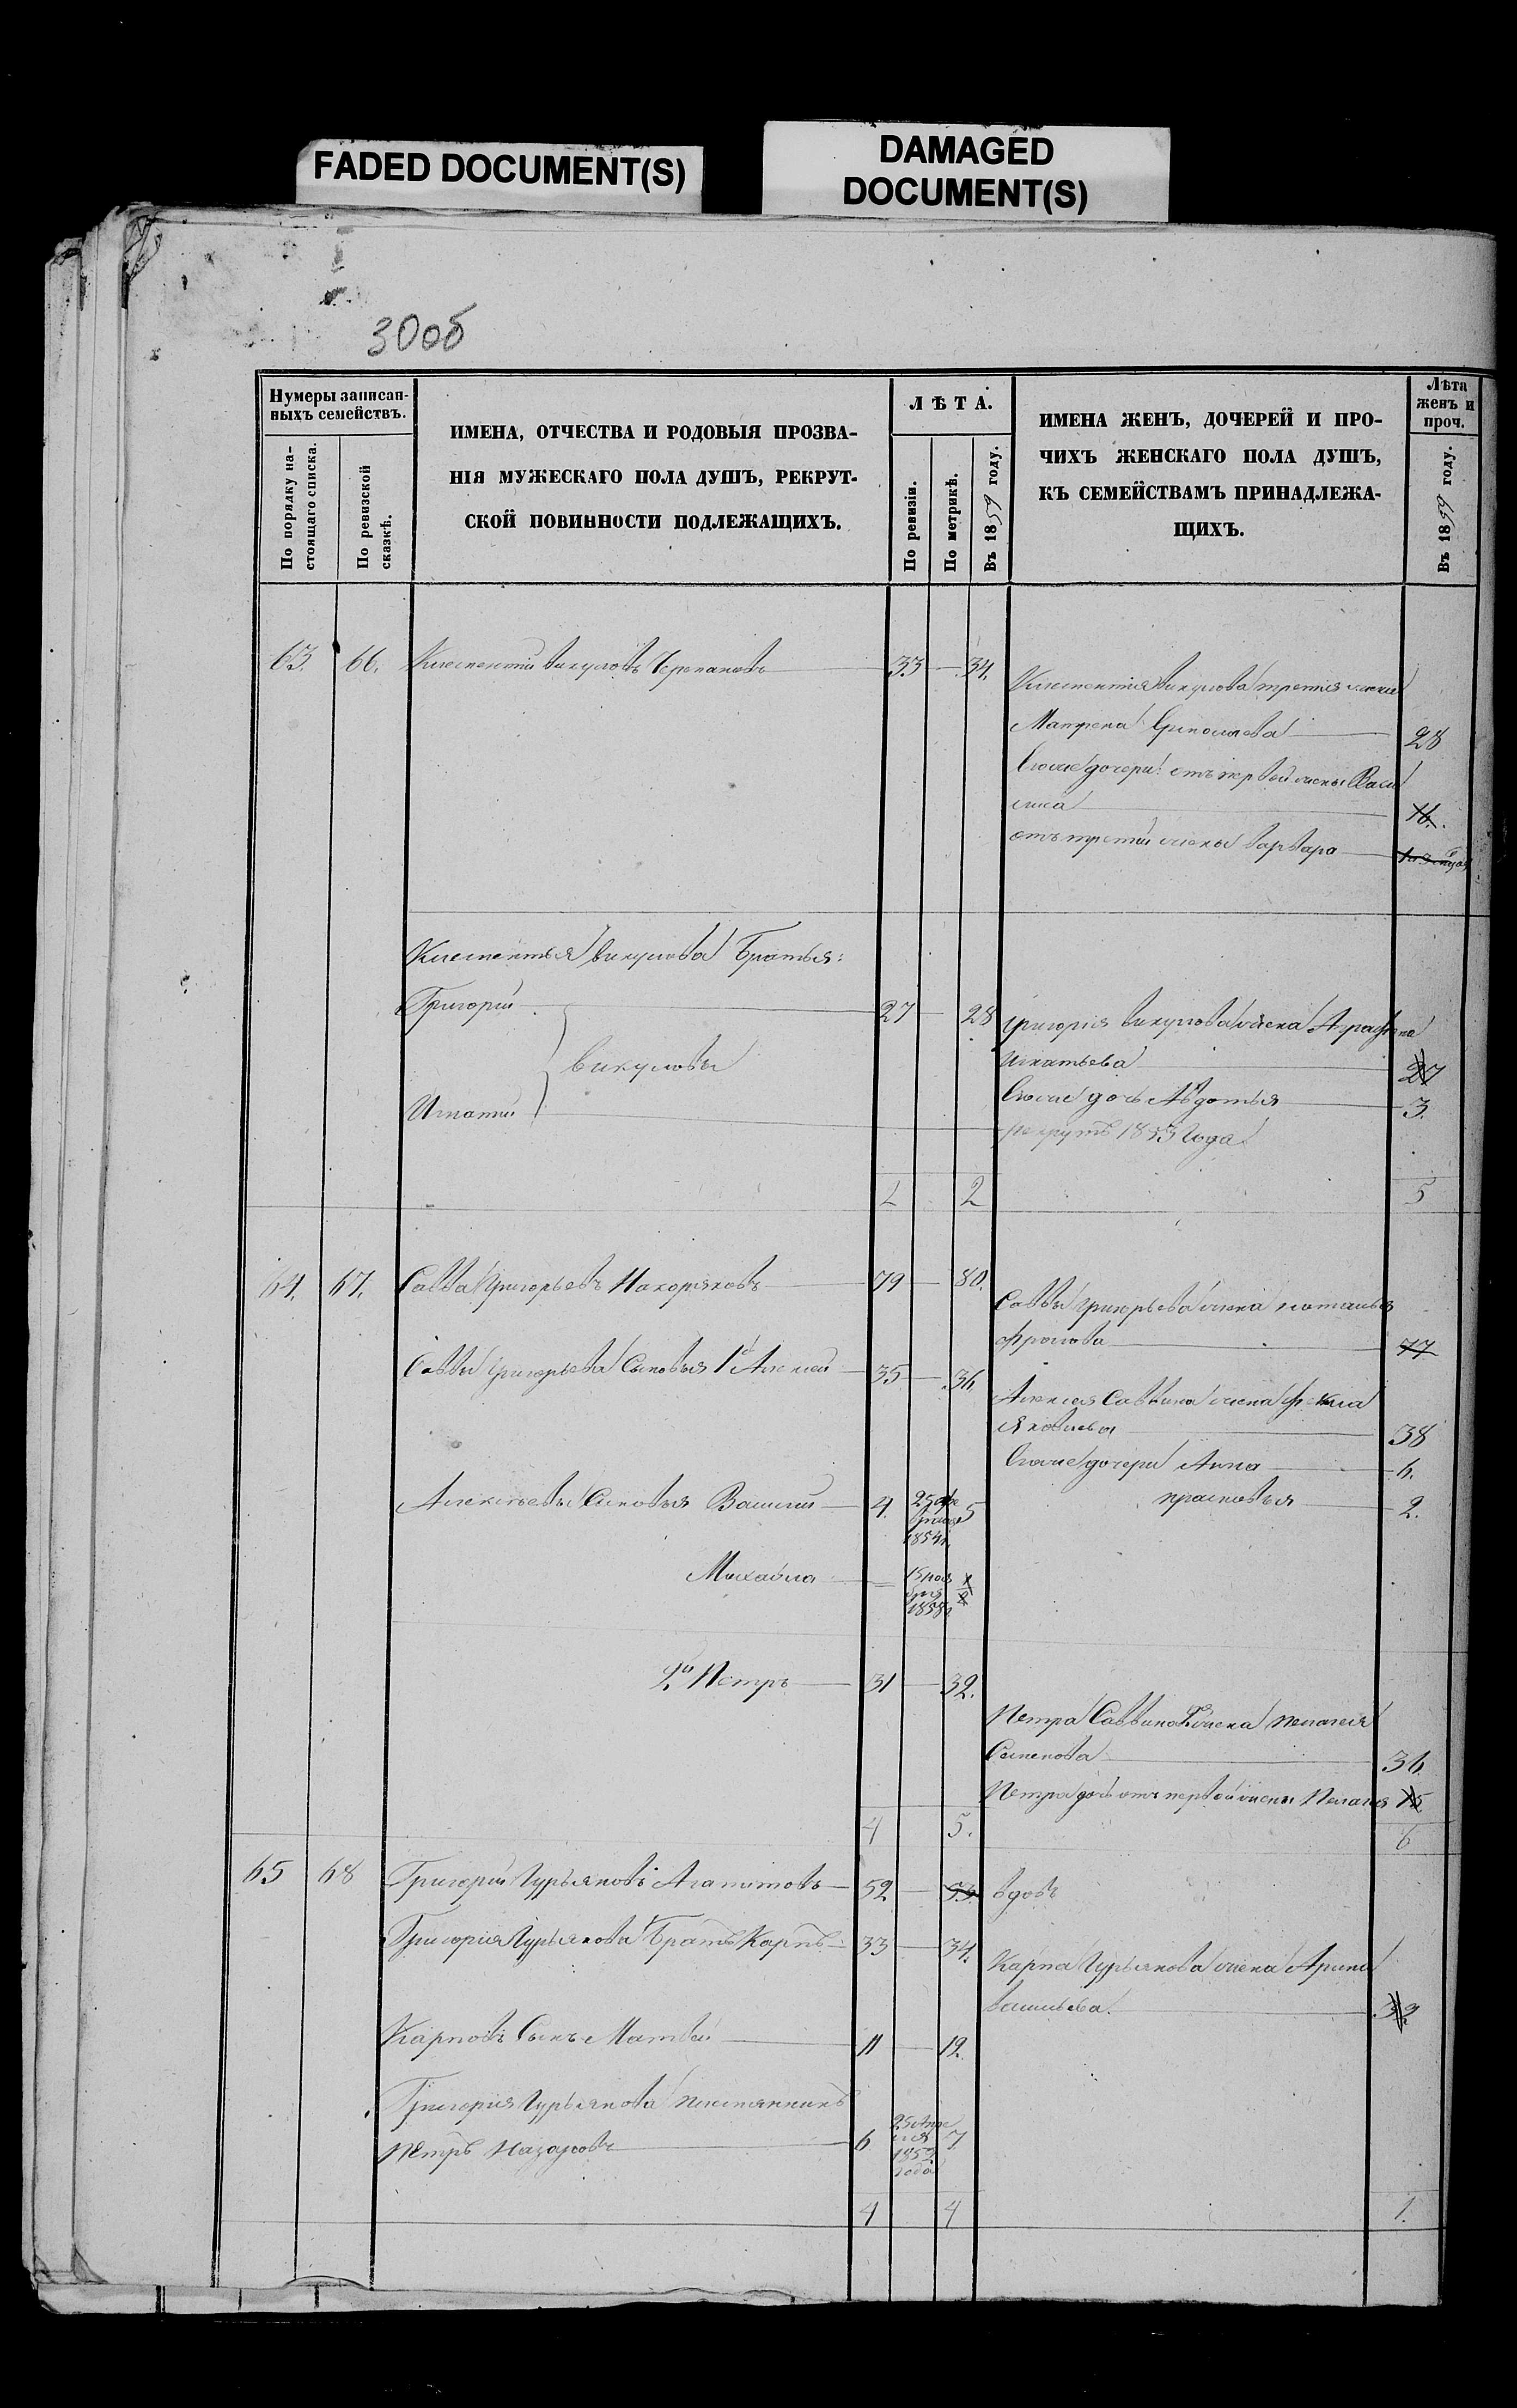 FADED DOCUMENT(S)
DAMAGED
DOCUMENT(S)
30об
Нумеры записан-
ныхъ семействъ.
По порядку на-
стоящаго списка.
По ревизской
сказкѣ.
ИМЕНА, ОТЧЕСТВА И РОДОВЫЯ ПРОЗВА-
НІЯ МУЖЕСКАГО ПОЛА ДУШЪ, РЕКРУТ-
СКОЙ ПОВИННОСТИ ПОДЛЕЖАЩИХЪ.
ЛѢТА.
По ревизіи.
По метрикѣ.
Въ 1859 году.
ИМЕНА ЖЕНЪ, ДОЧЕРЕЙ И ПРО-
ЧИХЪ ЖЕНСКАГО ПОЛА ДУШЪ,
КЪ СЕМЕЙСТВАМЪ ПРИНАДЛЕЖА-
ЩИХЪ.
Лѣта
женъ и
проч.
Въ 1859 году.
63. 66. Климентій Викуловъ Черепановъ 33 34.
Климентія Викулова третія жена
Матрена 28
дочери: отъ первой жены Васи
лиса 16.
отъ третій жены Варвара
Климентья Викулова Братья:
Григорій 27 28
Григорія Викулова жена Аграфена
Игнатьева 27
Викуловы
дочь Авдотья 3.
Игнатій
рекрутъ 1853 года
2 2 5
64. 67. Савва Григорьевъ Нахоряковъ 79 80.
Саввы Григорьева жена Наталья
Фролова 77
Саввы Григорьева Сыновья 1й Алексей 35 36
Алексея Саввина жена Фекла
Яковлева 38
дочери Анна 6.
Алексеевы Сыновья Василий 4. 5
Прасковья 2.
1854г.
Михайла 15 ноя
бря
1858г
2й Петръ 31 32.
Петра Саввинова жена Пелагея
Семенова 36
Петра дочь отъ первой жены Пелагея 15
4 5. 6
65 68 Григорій Гурьяновъ Агапитовъ 52 53. вдовъ
Григорія Гурьянова Братъ Карпъ 33 34.
Карпа Гурьянова жена Арина
Васильева. 32
Карповъ Сынъ Матвѣй 11 12.
Григорія Гурьянова племянникъ
Петръ Назаровъ 6 7
года
4 4 1.